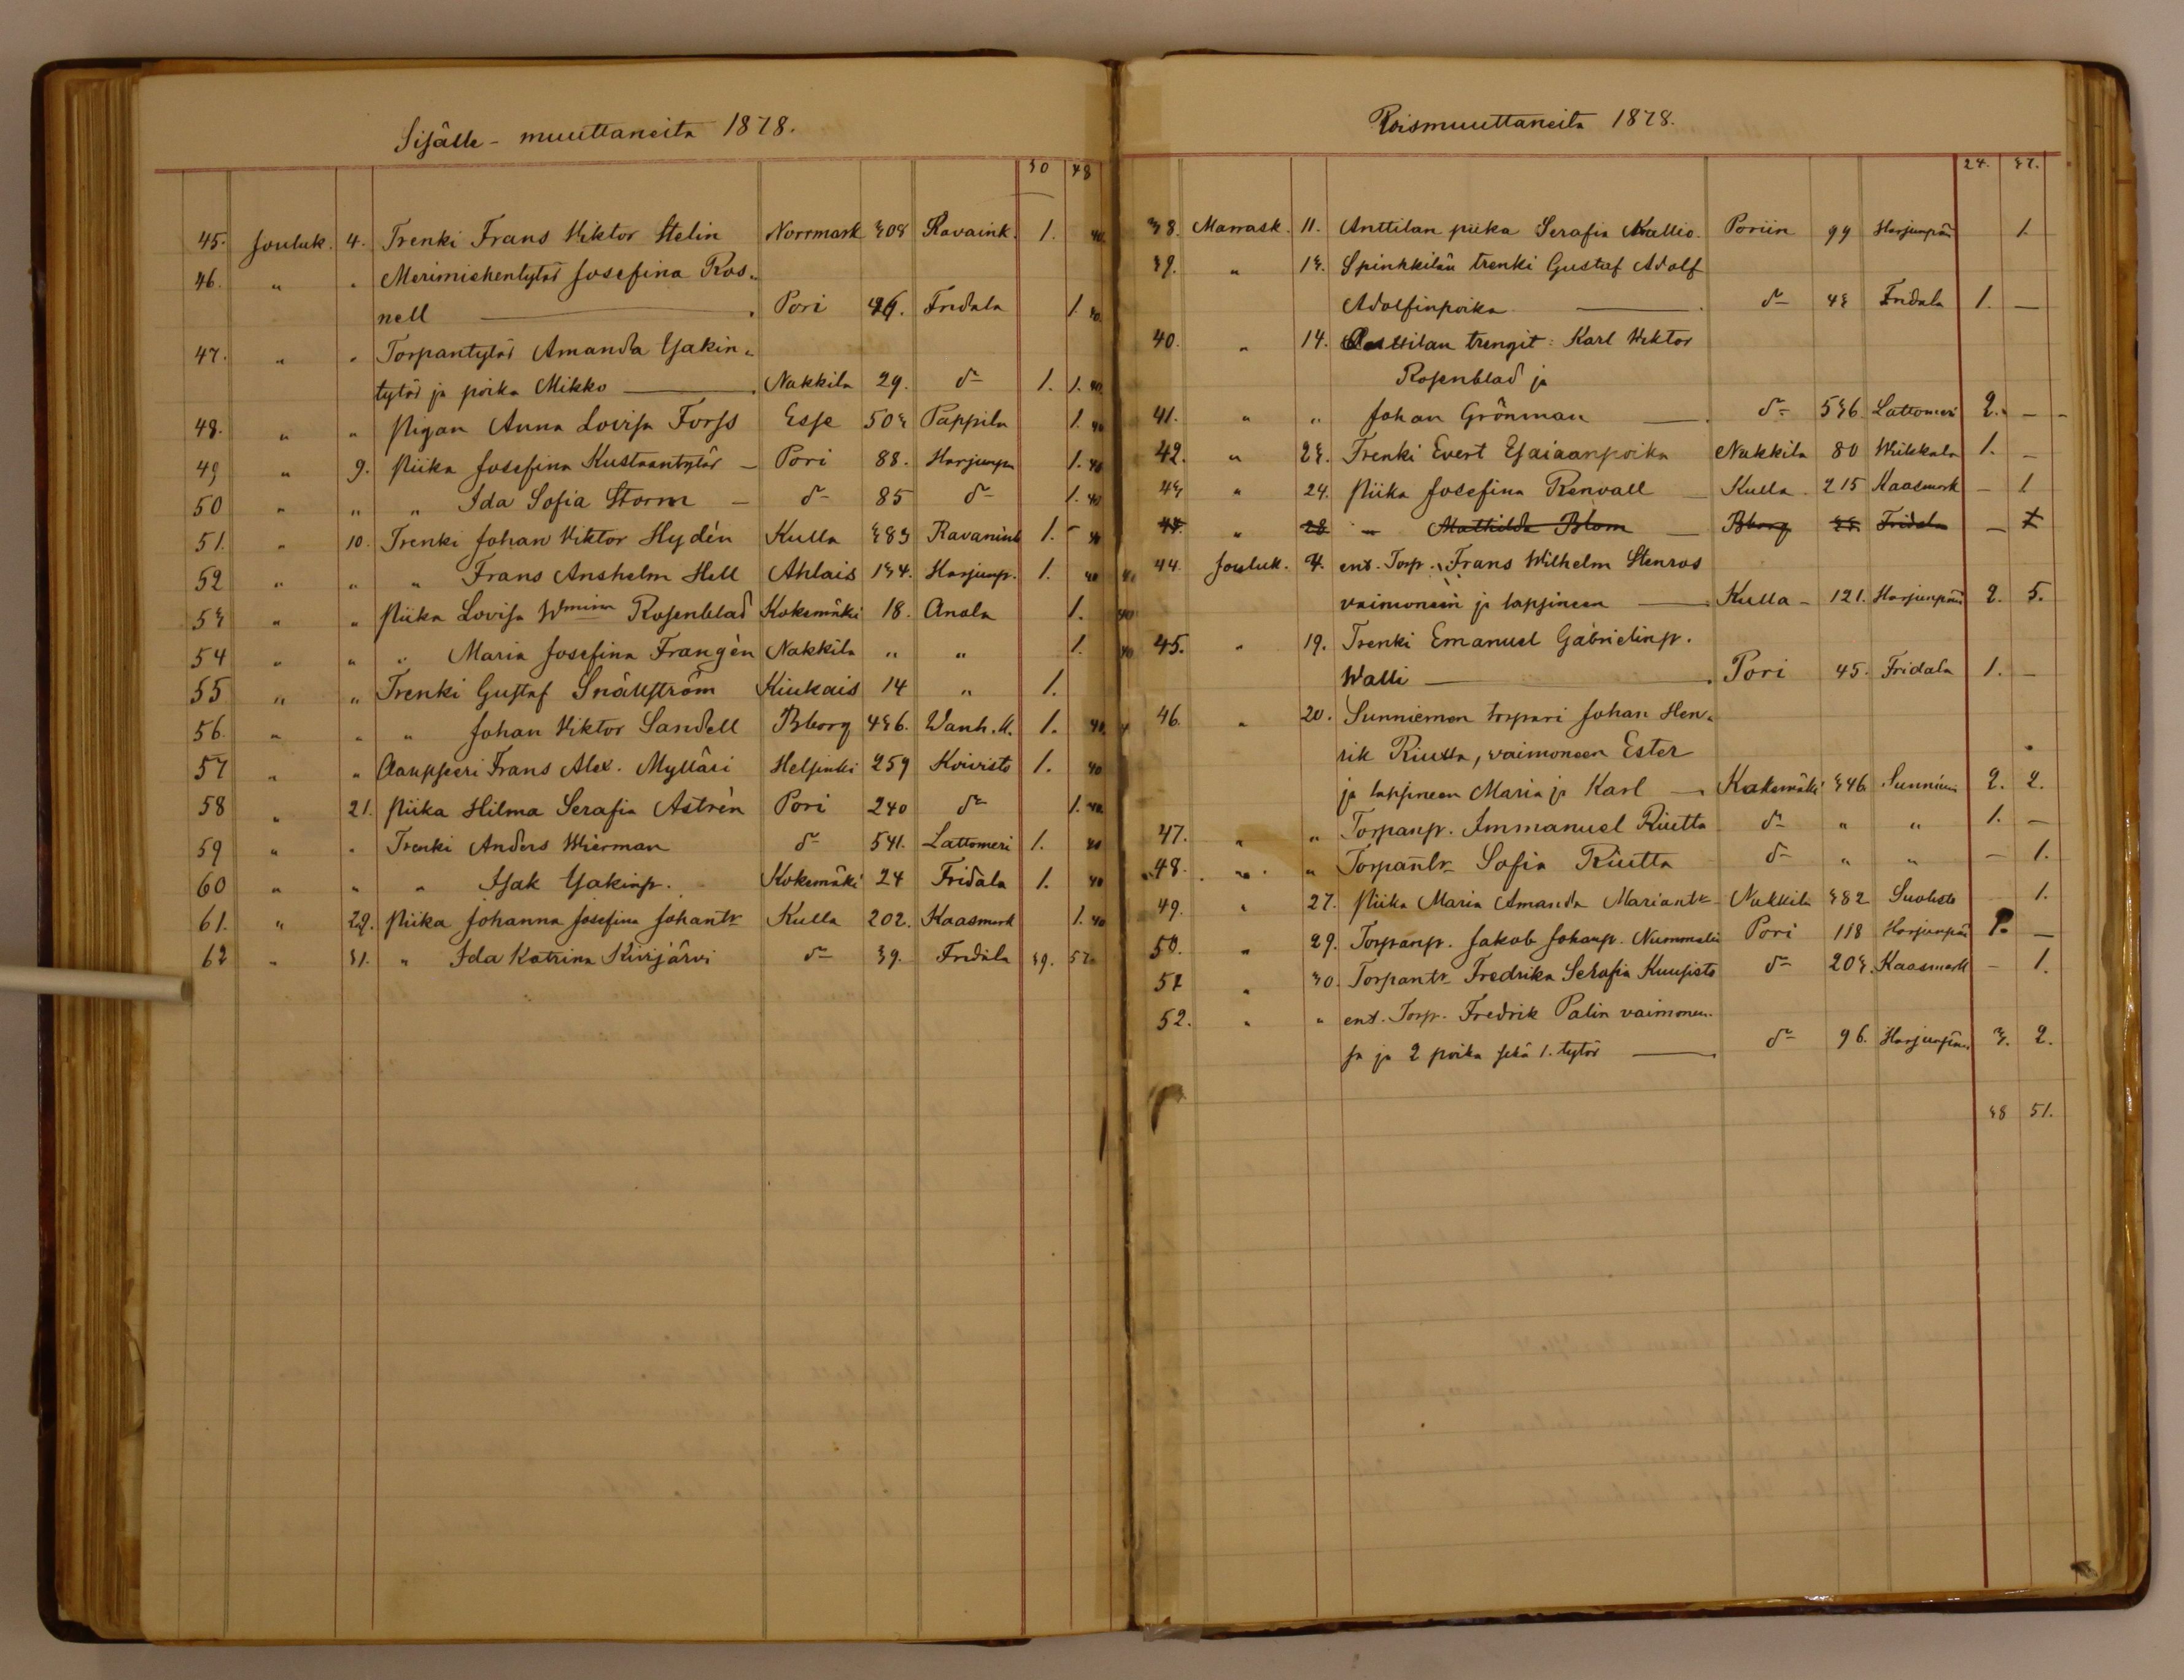 Sisälle - muuttaneita 1878.
30 48
45. Jouluk. 4. Trenki Frans Viktor Stelin Norrmark 308 Ravaink. 1. 40
46. " " Merimiehentytär Josefina Ros-
nell — Pori 26. Fridala 1. 40
47. " " Torpantytär Amanda Isakin-
tytär ja poika Mikko — Nakkila 29. d:o 1. 1. 40
48. " " Pigan Anna Lovisa Forss Esse 503 Pappila 1. 40
49 " 9. Piika Josefina Kustaantytär — Pori 88. Harjunpä 1. 40
50 " " " Ida Sofia Storm — d:o 85 d:o 1. 40
51. " 10. Trenki Johan Viktor Hydén Kulla 383 Ravanink 1. - 40
52 " " " Frans Anshelm Hell Ahlais 134. Harjunp. 1. 40
53 " " Piika Lovisa Wmina Rosenblad Kokemäki 18. Anola 1. 40
54 " " " Maria Josefina Frangén Nakkila " " 1. 40
55 " " Trenki Gustaf Snällström Kiukais 14 " 1.
56. " " " Johan Viktor Sandell Bborg 436. Wanh.K. 1. 40
57 " " Kauppseri Frans Alex. Mylläri Helsinki 259 Koivisto 1. 40
58 " 21. Piika Hilma Serafia Astrén Pori 240 d:o 1. 40
59 " " Trenki Anders Wierman d:o 541. Lattomeri 1. 40
60 " " " Isak Isakinp. Kokemäki 24 Fridala 1. 40
61. " 29. Piika Johanna Josefina Johantr Kulla 202. Kaasmark 1. 40
62 " 31. " Ida Katrina Kivijärvi d:o 39. Fridala 39. 57
Poismuuttaneita 1878.
24. 37.
38. Marrask. 11. Anttilan piika Serafia Kallio. Poriin 99 Harjunpää 1
39. " 13. Spinkkilän trenki Gustaf Adolf
Adolfinpoika — d:o 43 Fridala 1. —
40. " 14. trengit: Karl Viktor
Rosenblad ja
41. " " Johan Grönman — d:o 536. Lattomeri 2. -
42. " 23. Trenki Evert Esaiaanpoika Nakkila 80 Wiikkala 1. —
43 " 24. Piika Josefina Renvall — Kulla 215 Kaasmark — 1
44. " 28 " Mathilda Blom — Bborg 33. Fridala — 1
44. Jouluk. 4. ent. Torp. Frans Wilhelm Stenros
vaimoneen ja lapsineen — Kulla - 121. Harjunpää 2. 5.
45. " 19. Trenki Emanuel Gabrielinp.
Walli — Pori 45. Fridala 1. —
46. " 20. Sunniemen torpari Johan Hen-
rik Riutta, vaimoneen Ester
ja lapsineen Maria ja Karl — Kokemäki 346 Sunniem 2. 2.
47. " " Torpanp. Immanuel Riutta d:o " " 1. —
48. " " Torpantr Sofia Riutta d:o " " — 1.
49. " 27. Piika Maria Amanda Mariantr Nakkila 382 Suolisto 1.
50. " 29. Torpanp. Jakob Johanp. Nummelin Pori 118 Harjunpää 1. —
51 " 30. Torpantr Fredrika Serafia Kuusisto d:o 203. Kaasmark — 1.
52. " " ent. Torp. Fredrik Palin vaimonen-
sa ja 2 poika sekä 1. tytär — d:o 96. Harjunpää 3. 2.
38 51.